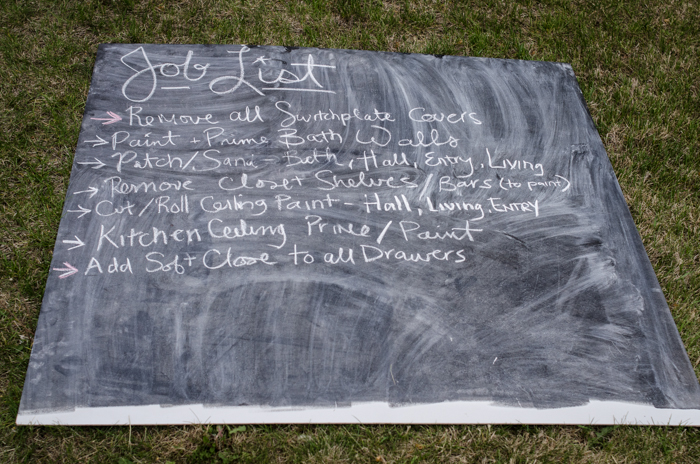 Job List
→ Remove all Switchplate Covers
→ Paint + Prime Bath Walls
→ Patch/Sand - Bath, Hall, Entry, Living
→ Remove Closet Shelves/Bars (to paint)
→ Cut/Roll Ceiling Paint - Hall, Living, Entry
→ Kitchen Ceiling Prime/Paint
→ Add Soft Close to all Drawers